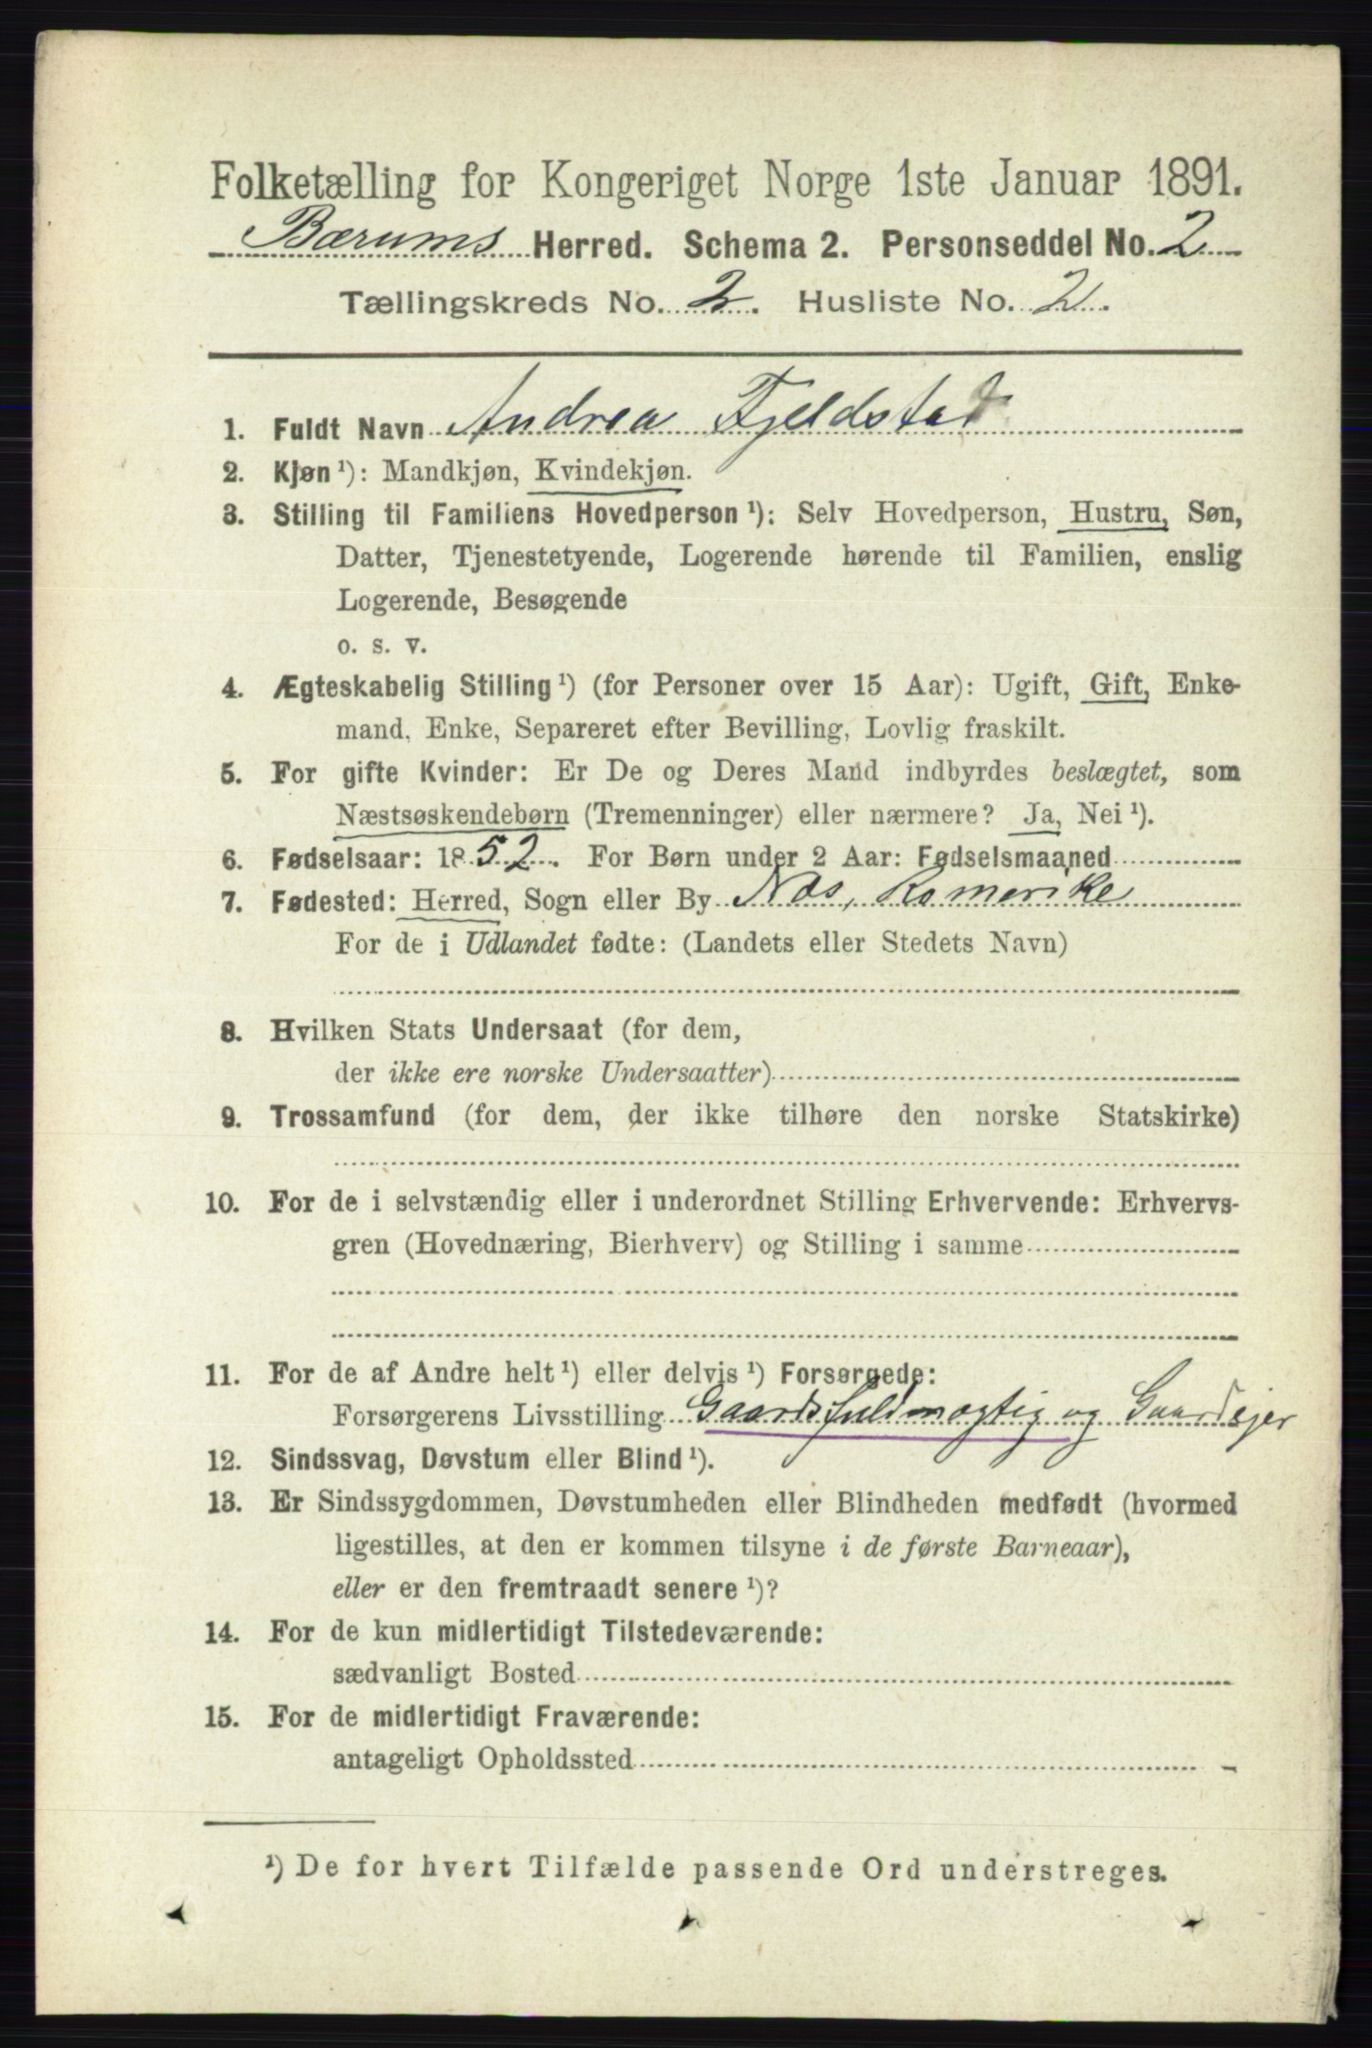 Folketælling for Kongeriget Norge 1ste Januar 1891.
Bærums Herred. Schema 2. Personseddel No. 2
Tællingskreds No. 2. Husliste No. 2.
1. Fuldt Navn Andrea Fjeldstad
2. Kjøn ¹): Mandkjøn, Kvindekjøn.
3. Stilling til Familiens Hovedperson ¹): Selv Hovedperson, Hustru, Søn,
Datter, Tjenestetyende, Logerende hørende til Familien, enslig
Logerende, Besøgende
o. s. v.
4. Ægteskabelig Stilling ¹) (for Personer over 15 Aar): Ugift, Gift, Enke-
mand, Enke, Separeret efter Bevilling, Lovlig fraskilt.
5. For gifte Kvinder: Er De og Deres Mand indbyrdes beslægtet, som
Næstsøskendebørn (Tremenninger) eller nærmere? Ja, Nei ¹).
6. Fødselsaar: 1852. For Børn under 2 Aar: Fødselsmaaned
7. Fødested: Herred, Sogn eller By Næs, Romerike
For de i Udlandet fødte: (Landets eller Stedets Navn)
8. Hvilken Stats Undersaat (for dem,
der ikke ere norske Undersaatter)
9. Trossamfund (for dem, der ikke tilhøre den norske Statskirke)
10. For de i selvstændig eller i underordnet Stilling Erhvervende: Erhvervs-
gren (Hovednæring, Bierhverv) og Stilling i samme
11. For de af Andre helt ¹) eller delvis ¹) Forsørgede:
Forsørgerens Livsstilling Gaardsfuldmægtig og Gaardejer
12. Sindssvag, Døvstum eller Blind ¹).
13. Er Sindssygdommen, Døvstumheden eller Blindheden medfødt (hvormed
ligestilles, at den er kommen tilsyne i de første Barneaar),
eller er den fremtraadt senere ¹)?
14. For de kun midlertidigt Tilstedeværende:
sædvanligt Bosted
15. For de midlertidigt Fraværende:
antageligt Opholdssted
¹) De for hvert Tilfælde passende Ord understreges.